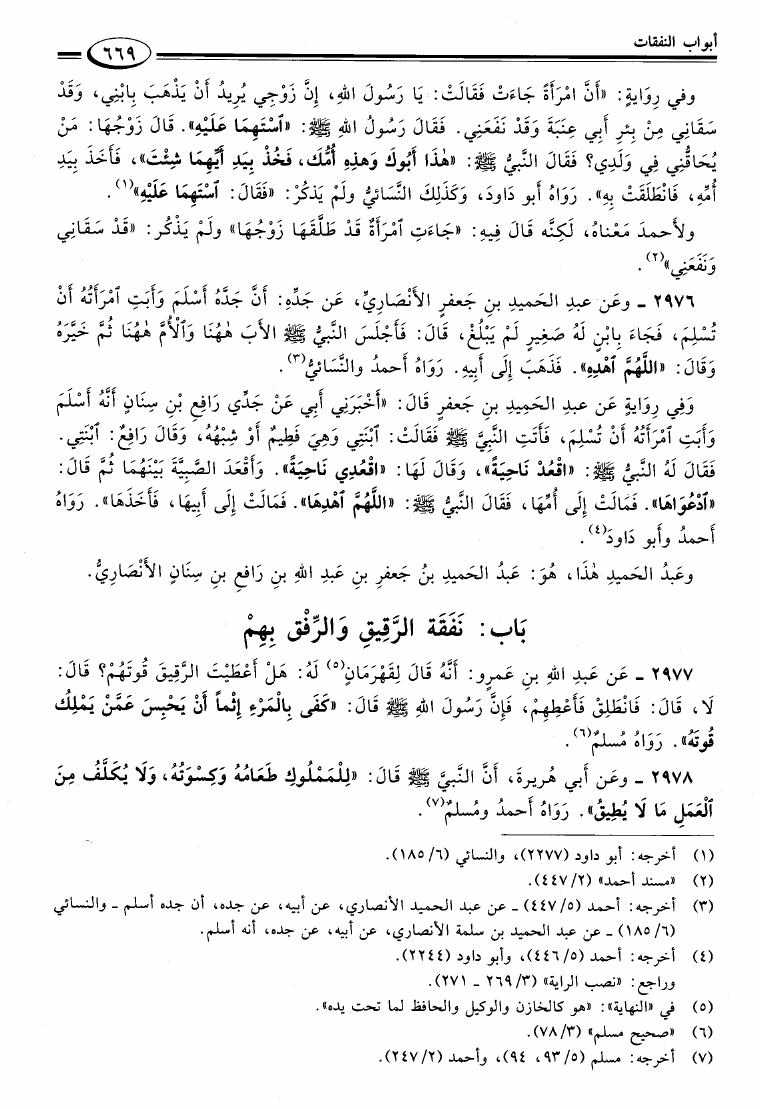 أبواب النفقات
٦٦٩
وفي رِوَايةٍ: «أَنَّ امْرَأَةً جَاءَتْ فَقَالَتْ: يَا رَسُولَ اللهِ، إِنَّ زَوْجِي يُرِيدُ أَنْ يَذْهَبَ بِابْنِي، وَقَدْ
سَقَانِي مِنْ بِئْرِ أَبِي عِنَبَةَ وَقَدْ نَفَعَنِي. فَقَالَ رَسُولُ اللهِ ﷺ: «ٱسْتَهِمَا عَلَيْهِ». قَالَ زَوْجُهَا: مَنْ
يُحَاقُّنِي فِي وَلَدِي؟ فَقَالَ النَّبِيُّ ﷺ: «هٰذَا أَبُوكَ وَهٰذِهِ أُمُّكَ، فَخُذْ بِيَدِ أَيِّهِمَا شِئْتَ»، فَأَخَذَ بِيَدِ
أُمِّهِ، فَانْطَلَقَتْ بِهِ». رَوَاهُ أبو دَاودَ، وَكَذَلِكَ النَّسَائيُّ ولَمْ يَذكُرْ: «فَقَالَ: ٱسْتَهِمَا عَلَيْهِ»(١).
ولأحمدَ مَعْناهُ، لَكِنَّه قَالَ فِيهِ: «جَاءَتِ ٱمْرَأَةٌ قَدْ طَلَّقَهَا زَوْجُهَا» ولَمْ يَذْكُر: «قَدْ سَقَانِي
وَنَفَعَنِي»(٢).
٢٩٧٦ ـ وعَن عبدِ الحَميدِ بنِ جَعفرٍ الأَنْصَاريِّ، عَن جَدِّهِ: أَنَّ جَدَّهُ أَسْلَمَ وَأَبَتِ ٱمْرَأَتُهُ أَنْ
تُسْلِمَ، فَجَاءَ بِابْنٍ لَهُ صَغِيرٍ لَمْ يَبْلُغْ، قَالَ: فَأَجْلَسَ النَّبِيُّ ﷺ الأَبَ هٰهُنَا وَٱلْأُمَّ هٰهُنَا ثُمَّ خَيَّرَهُ
وَقَالَ: «اللَّهُمَّ ٱهْدِهِ». فَذَهَبَ إِلَى أَبِيهِ. رَوَاهُ أحمدُ والنَّسَائيُّ(٣).
وَفِي رِوَايةٍ عَن عبدِ الحَمِيدِ بنِ جَعفرٍ قَالَ: «أَخْبَرَنِي أَبِي عَنْ جَدِّي رَافِعِ بْنِ سِنَانٍ أَنَّهُ أَسْلَمَ
وَأَبَتِ ٱمْرَأَتُهُ أَنْ تُسْلِمَ، فَأَتَتِ النَّبِيَّ ﷺ فَقَالَتْ: ٱبْنَتِي وَهِيَ فَطِيمٌ أَوْ شِبْهُهُ، وَقَالَ رَافِعٌ: ٱبْنَتِي.
فَقَالَ لَهُ النَّبِيُّ ﷺ: «ٱقْعُدْ نَاحِيَةً»، وَقَالَ لَهَا: «ٱقْعُدِي نَاحِيَةً». وَأَقْعَدَ الصَّبِيَّةَ بَيْنَهُمَا ثُمَّ قَالَ:
«ٱدْعُوَاهَا». فَمَالَتْ إِلَى أُمِّهَا، فَقَالَ النَّبِيُّ ﷺ: «اللَّهُمَّ ٱهْدِهَا». فَمَالَتْ إِلَى أَبِيهَا، فَأَخَذَهَا». رَوَاهُ
أحمدُ وأبو دَاودَ(٤).
وعَبدُ الحَمِيدِ هٰذَا، هُوَ: عَبدُ الحَميدِ بنُ جَعفرِ بنِ عَبدِ اللهِ بنِ رَافعِ بنِ سِنَانٍ الأَنْصَاريُّ.
بَاب: نَفَقَة الرَّقِيقِ وَالرِّفْق بِهِمْ
٢٩٧٧ ـ عَن عَبدِ اللهِ بنِ عَمرٍو: أَنَّهُ قَالَ لِقَهْرَمَانٍ(٥) لَهُ: هَلْ أَعْطَيْتَ الرَّقِيقَ قُوتَهُمْ؟ قَالَ:
لَا، قَالَ: فَانْطَلِقْ فَأَعْطِهِمْ، فَإِنَّ رَسُولَ اللهِ ﷺ قَالَ: «كَفَى بِالْمَرْءِ إِثْماً أَنْ يَحْبِسَ عَمَّنْ يَمْلِكُ
قُوتَهُ». رَوَاهُ مُسلمٌ(٦).
٢٩٧٨ ـ وعَن أبي هُريرةَ، أَنَّ النَّبيَّ ﷺ قَالَ: «لِلْمَمْلُوكِ طَعَامُهُ وَكِسْوَتُهُ، وَلَا يُكَلَّفُ مِنَ
ٱلْعَمَلِ مَا لَا يُطِيقُ». رَوَاهُ أحمدُ ومُسلمٌ(٧).
(١) أخرجه: أبو داود (٢٢٧٧)، والنسائي (٦/ ١٨٥).
(٢) «مسند أحمد» (٢/ ٤٤٧).
(٣) أخرجه: أحمد (٥/ ٤٤٧) ـ عن عبد الحميد الأنصاري، عن أبيه، عن جده، أن جده أسلم ـ والنسائي
(٦/ ١٨٥) ـ عن عبد الحميد بن سلمة الأنصاري، عن أبيه، عن جده، أنه أسلم.
(٤) أخرجه: أحمد (٥/ ٤٤٦)، وأبو داود (٢٢٤٤).
وراجع: «نصب الراية» (٣/ ٢٦٩ ـ ٢٧١).
(٥) في «النهاية»: «هو كالخازن والوكيل والحافظ لما تحت يده».
(٦) «صحيح مسلم» (٣/ ٧٨).
(٧) أخرجه: مسلم (٥/ ٩٣، ٩٤)، وأحمد (٢/ ٢٤٧).